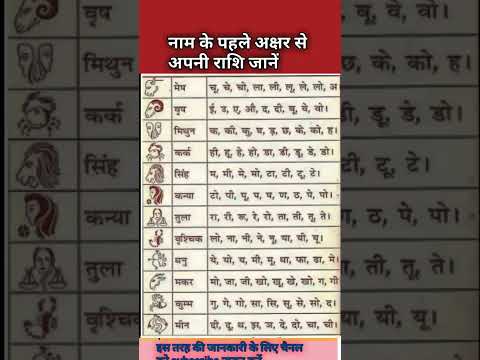 नाम के पहले अक्षर से
अपनी राशि जानें
मेष चू, चे, चो, ला, ली, लू, ले, लो, अ
वृष ई, उ, ए, औ, द, दी, वू, वे, वो।
मिथुन क, की, कु, घ, ड़, छ, के, को, ह।
कर्क ही, हू, हे, हो, डा, डी, डू, डे, डो।
सिंह म, मी, मे, मो, टा, टी, टू, टे।
कन्या टो, पी, पू, ष, ण, ठ, पे, पो।
तुला रा, री, रू, रे, रो, ता, ती, तू, ते।
वृश्चिक लो, ना, नी, ने, नू, या, यी, यू।
धनु ये, यो, य, मी, मू, धा, फा, ढा, मे।
मकर मो, जा, जी, खो, खू, खे, खो, ग, गो
कुम्भ गु, गे, गो, सा, सि, सु, से, सो, द।
मीन दी, दू, थ, झ, ञ, दे, दो, चा, ची।
इस तरह की जानकारी के लिए चैनल
वृष
मिथुन
कर्क
सिंह
कन्या
तुला
वृश्चिक
वे, वो।
छ, के, को, ह।
डू, डे, डो।
टू, टे।
ण, ठ, पे, पो।
ती, तू, ते।
यी, यू।